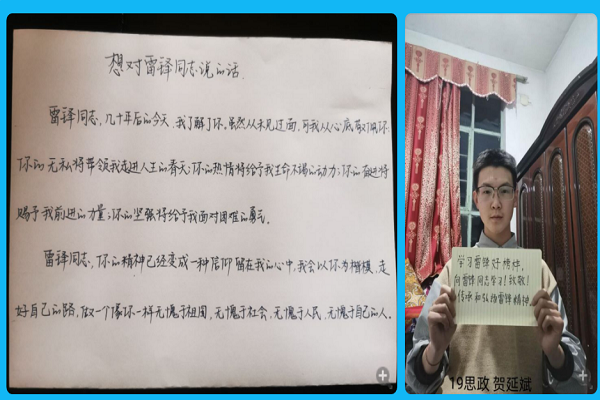 想对雷锋同志说的话
雷锋同志,几十年后的今天,我了解了你。虽然从未见过面,可我从心底敬佩你
你的无私将带领我走进人生的春天;你的热情将给予我生命不竭的动力;你的奋进将
赐予我前进的力量;你的坚强将给予我面对困难的勇气。
雷锋同志,你的精神已经变成一种信仰留在我的心中,我会以你为楷模,走
好自己的路,做一个像你一样无愧于祖国,无愧于社会,无愧于人民,无愧于自己的人。
学习雷锋好榜样,
向雷锋同志学习!致敬!
传承和弘扬雷锋精神
19思政 贺延斌